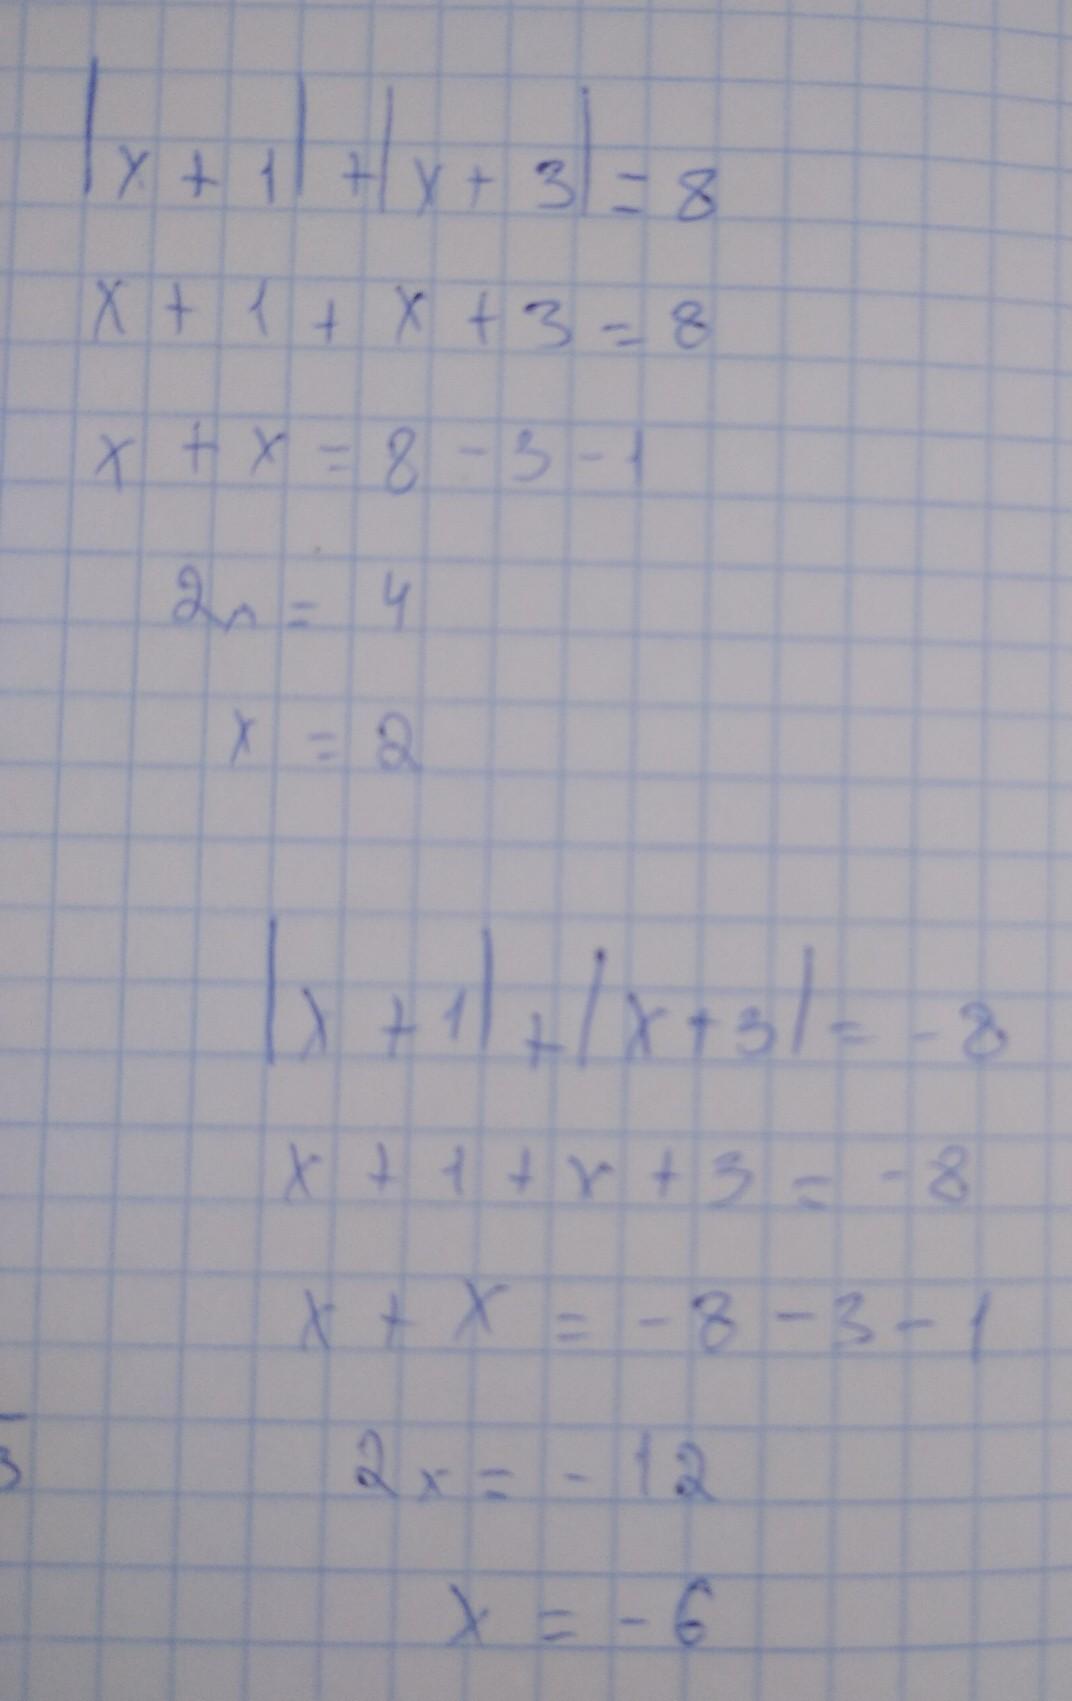 |x + 1| + |x + 3| = 8
x + 1 + x + 3 = 8
x + x = 8 - 3 - 1
2x = 4
x = 2
|x + 1| + |x + 3| = - 8
x + 1 + x + 3 = - 8
x + x = - 8 - 3 - 1
3
2x = - 12
x = - 6